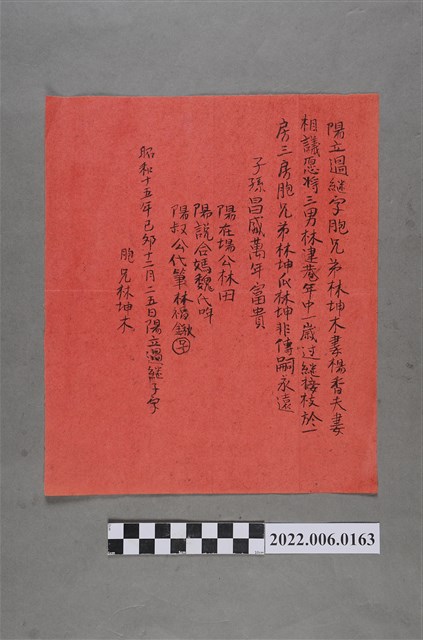 陽立過継字胞兄弟林坤木妻楊香夫妻
相議愿將三男林建巷年中一歲过継接枝於一
房三房胞兄弟林坤瓜林坤非傳嗣永遠
子孫昌盛萬年富貴
陽在場公林田
陽說合媽魏氏
陽叔公代筆林
昭和十五年己卯十二月二五日陽立過継字
胞兄林坤木
2022.006.0163